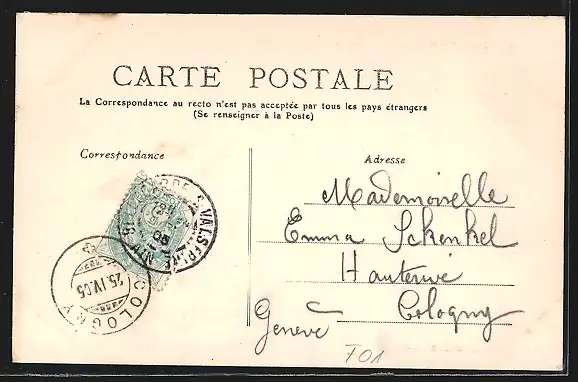 CARTE POSTALE
La Correspondance au recto n'est pas acceptée par tous les pays étrangers
(Se renseigner à la Poste)
Correspondance
Adresse
Mademoiselle
Emma Schenkel
Hauterive
Cologny
Genève
VALSERINE
05
COLOGNY
25.IV.05
F01